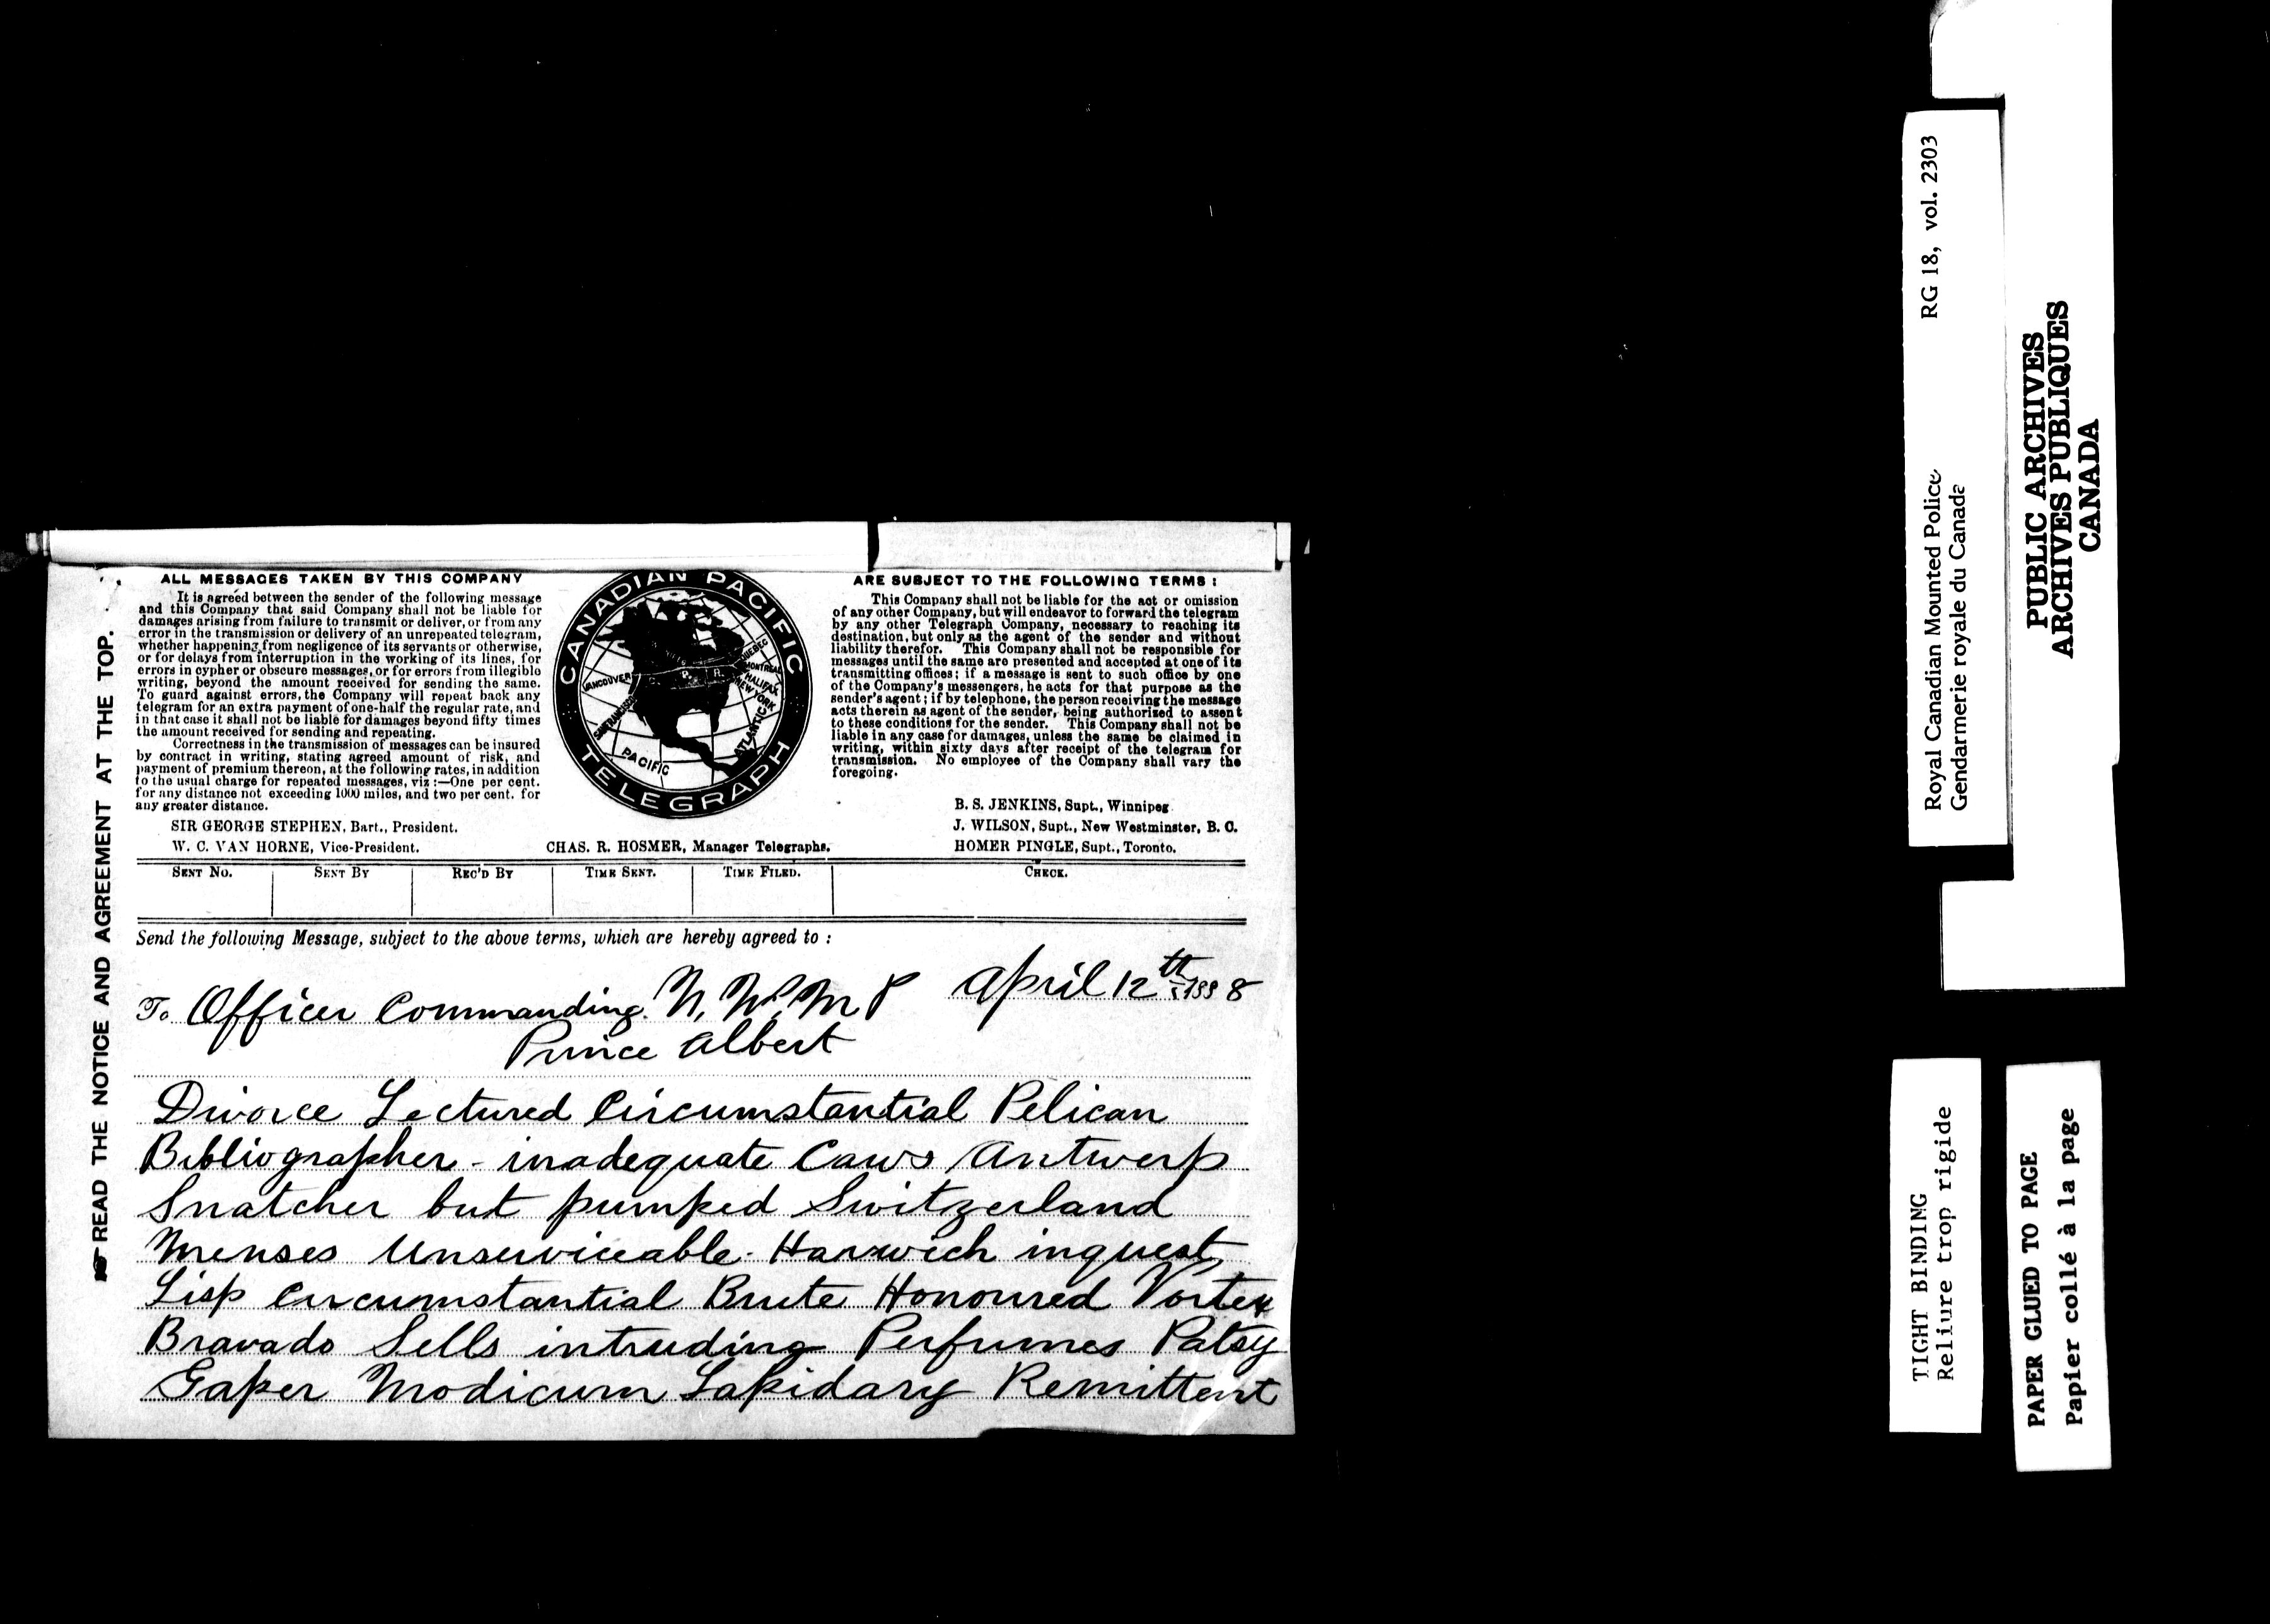 READ THE NOTICE AND AGREEMENT AT THE TOP.
ALL MESSAGES TAKEN BY THIS COMPANY
It is agreed between the sender of the following message
and this Company that said Company shall not be liable for
damages arising from failure to transmit or deliver, or from any
error in the transmission or delivery of an unrepeated telegram,
whether happening from negligence of its servants or otherwise,
or for delays from interruption in the working of its lines, for
errors in cypher or obscure messages, or for errors from illegible
writing, beyond the amount received for sending the same.
To guard against errors, the Company will repeat back any
telegram for an extra payment of one-half the regular rate, and
in that case it shall not be liable for damages beyond fifty times
the amount received for sending and repeating.
Correctness in the transmission of messages can be insured
by contract in writing, stating agreed amount of risk, and
payment of premium thereon, at the following rates, in addition
to the usual charge for repeated messages, viz:—One per cent.
for any distance not exceeding 1000 miles, and two per cent. for
any greater distance.
SIR GEORGE STEPHEN, Bart., President.
W. C. VAN HORNE, Vice-President.
CANADIAN PACIFIC
TELEGRAPH
VANCOUVER
C. P. R.
QUEBEC
MONTREAL
HALIFAX
NEW YORK
SAN FRANCISCO
ATLANTIC
PACIFIC
CHAS. R. HOSMER, Manager Telegraphs.
ARE SUBJECT TO THE FOLLOWING TERMS:
This Company shall not be liable for the act or omission
of any other Company, but will endeavor to forward the telegram
by any other Telegraph Company, necessary to reaching its
destination, but only as the agent of the sender and without
liability therefor. This Company shall not be responsible for
messages until the same are presented and accepted at one of its
transmitting offices; if a message is sent to such office by one
of the Company's messengers, he acts for that purpose as the
sender's agent; if by telephone, the person receiving the message
acts therein as agent of the sender, being authorized to assent
to these conditions for the sender. This Company shall not be
liable in any case for damages, unless the same be claimed in
writing, within sixty days after receipt of the telegram for
transmission. No employee of the Company shall vary the
foregoing.
B. S. JENKINS, Supt., Winnipeg
J. WILSON, Supt., New Westminster, B. C.
HOMER PINGLE, Supt., Toronto.
SENT NO. SENT BY REC'D BY TIME SENT. TIME FILED. CHECK.
Send the following Message, subject to the above terms, which are hereby agreed to:
April 12th 1888
To Officer Commanding N. W. M P
Prince Albert
Divorce Lectured Circumstantial Pelican
Bibliographer - inadequate Caws Antwerp
Snatcher but pumped Switzerland
Menses Unserviceable - Harwich inquest
Lisp Circumstantial Brute Honoured Vortex
Bravado Sells intruding Perfumes Patsy
Gaper Modicum Lapidary Remittent
Royal Canadian Mounted Police RG 18, vol. 2303
Gendarmerie royale du Canada
PUBLIC ARCHIVES
ARCHIVES PUBLIQUES
CANADA
TIGHT BINDING
Reliure trop rigide
PAPER GLUED TO PAGE
Papier collé à la page